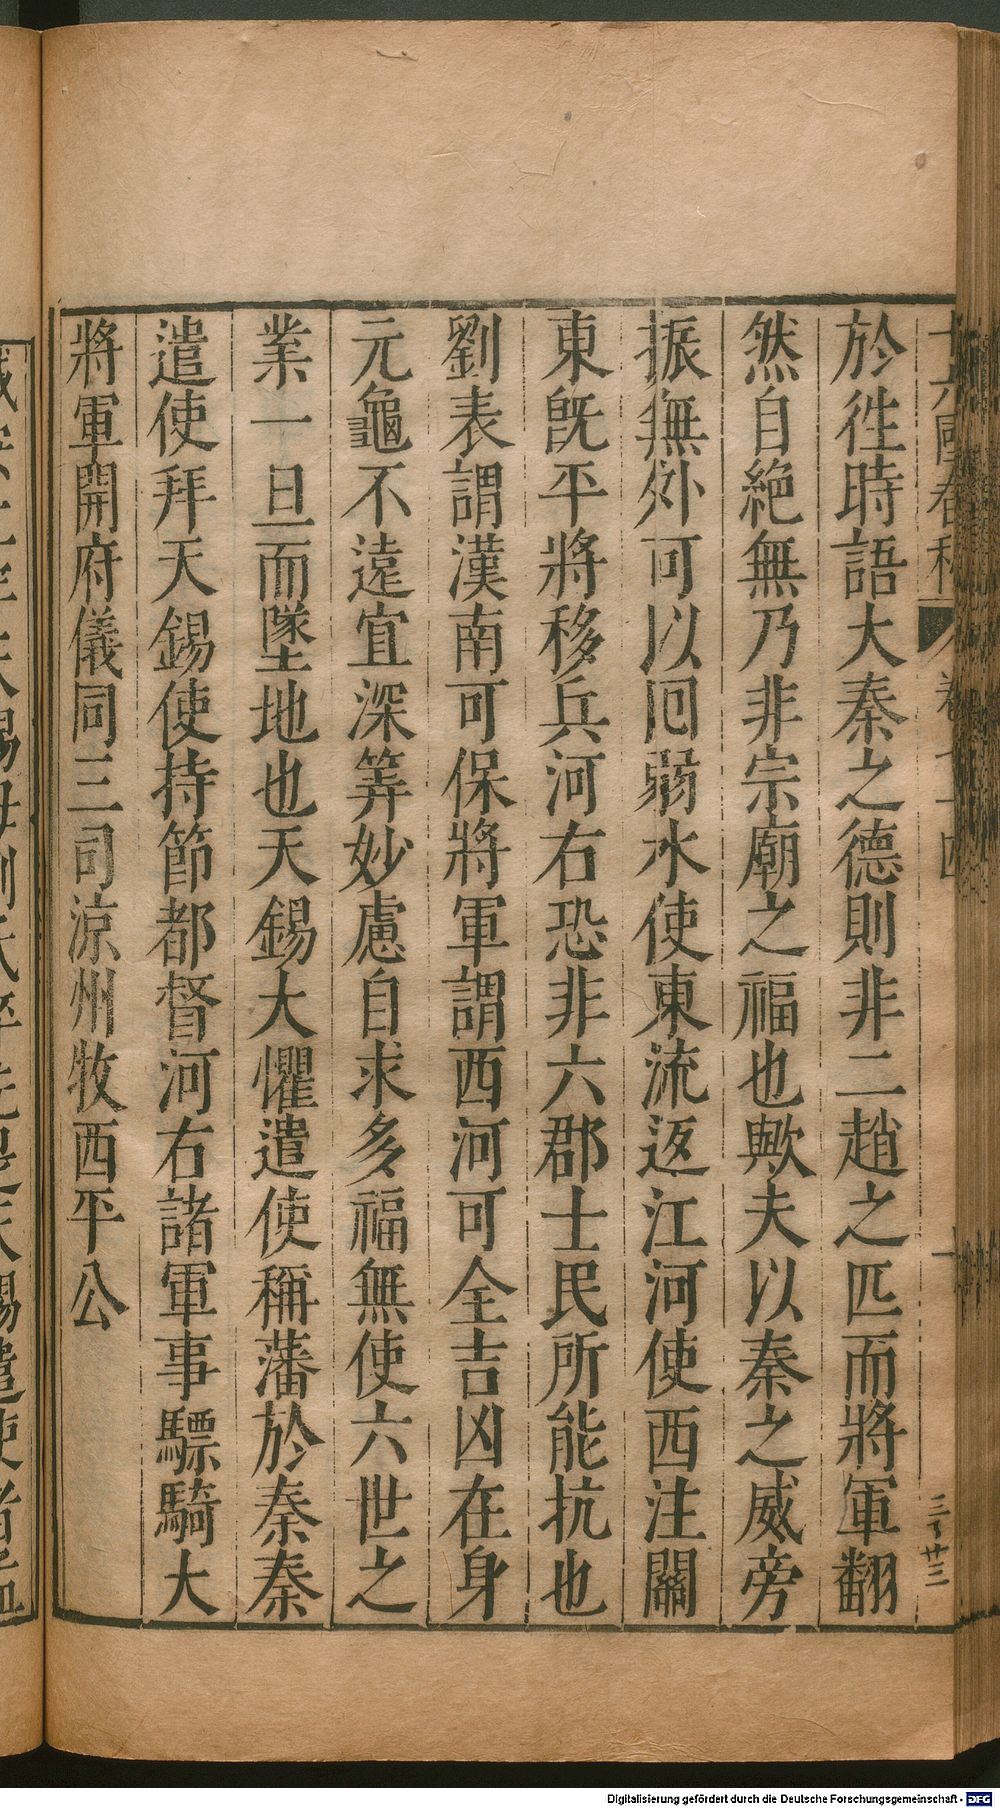 於徃時語大秦之德則非二趙之匹而將軍翻
然自絶無乃非宗廟之福也歟夫以秦之威旁
振無外可以囘弱水使東流返江河使西注關
東旣平將移兵河右恐非六郡士民所能抗也
劉表謂漢南可保將軍謂西河可全吉凶在身
元龜不遠宜深筭妙慮自求多福無使六世之
業一旦而墜地也天錫大懼遣使稱藩於秦秦
遣使拜天錫使持節都督河右諸軍事驃騎大
將軍開府儀同三司涼州牧西平公
Digitalisierung gefördert durch die Deutsche Forschungsgemeinschaft - DFG